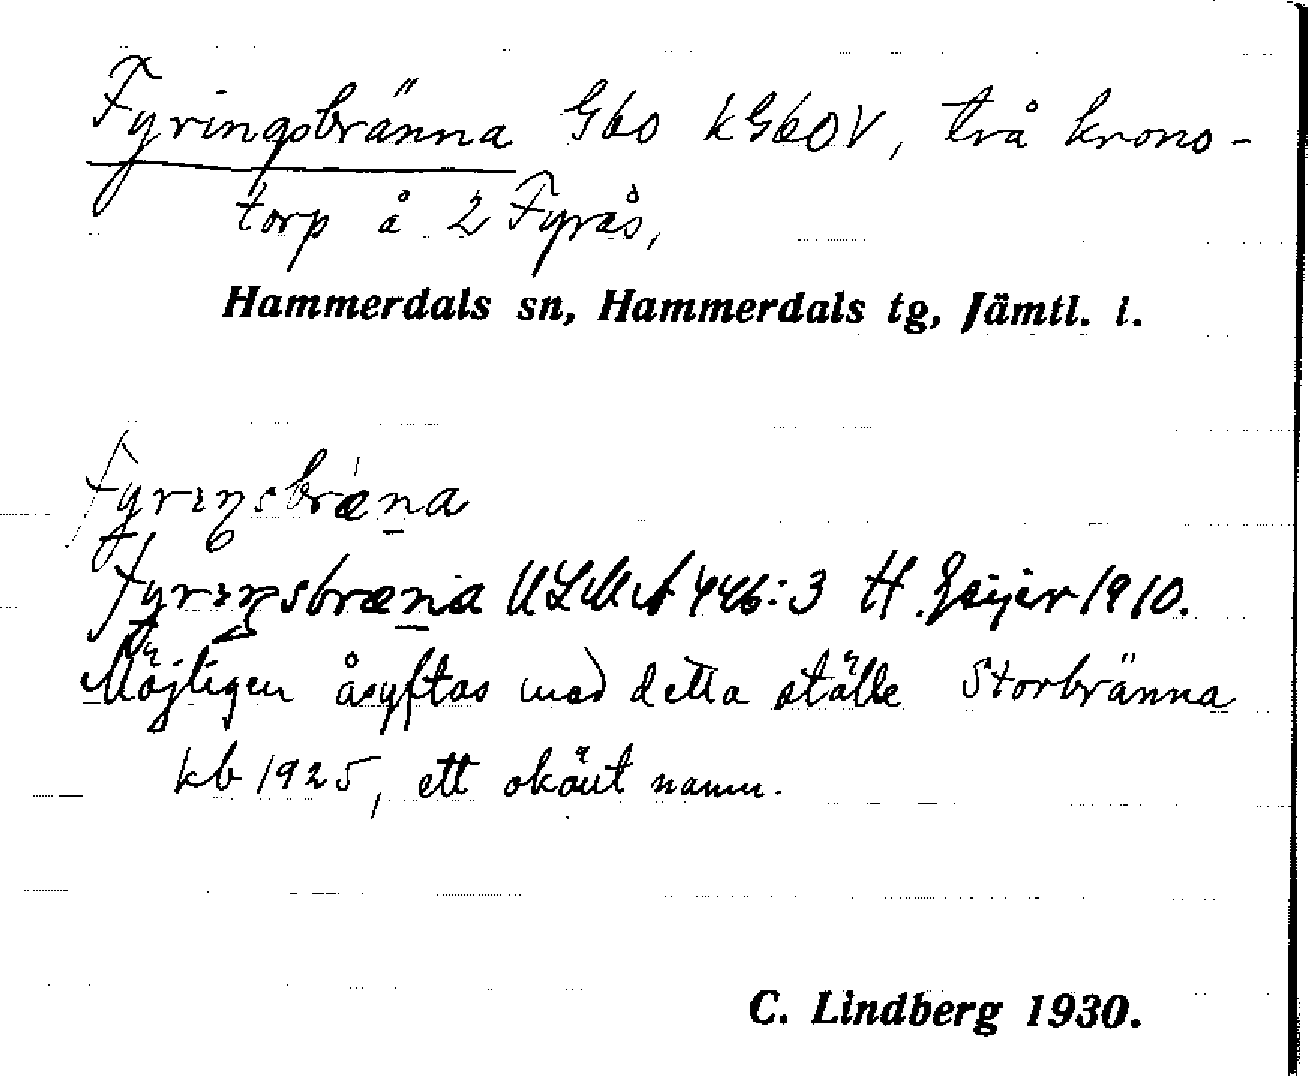 Fyringsbränna G60 kG60V, två krono-
torp å 2 Fyrås,
Hammerdals sn, Hammerdals tg, Jämtl. l.
Fyrıŋsbræ̍n̲a
Fyrıŋsbræn̲a ULMA 446:3 H. Geijer 1910.
Möjligen åsyftas med detta ställe Storbränna
kb 1925, ett okänt namn.
C. Lindberg 1930.